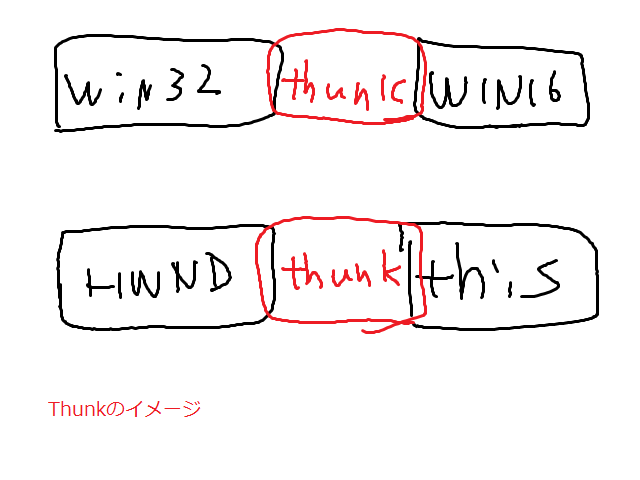 Win32 thunk WIN16
HWND thunk this
Thunkのイメージ